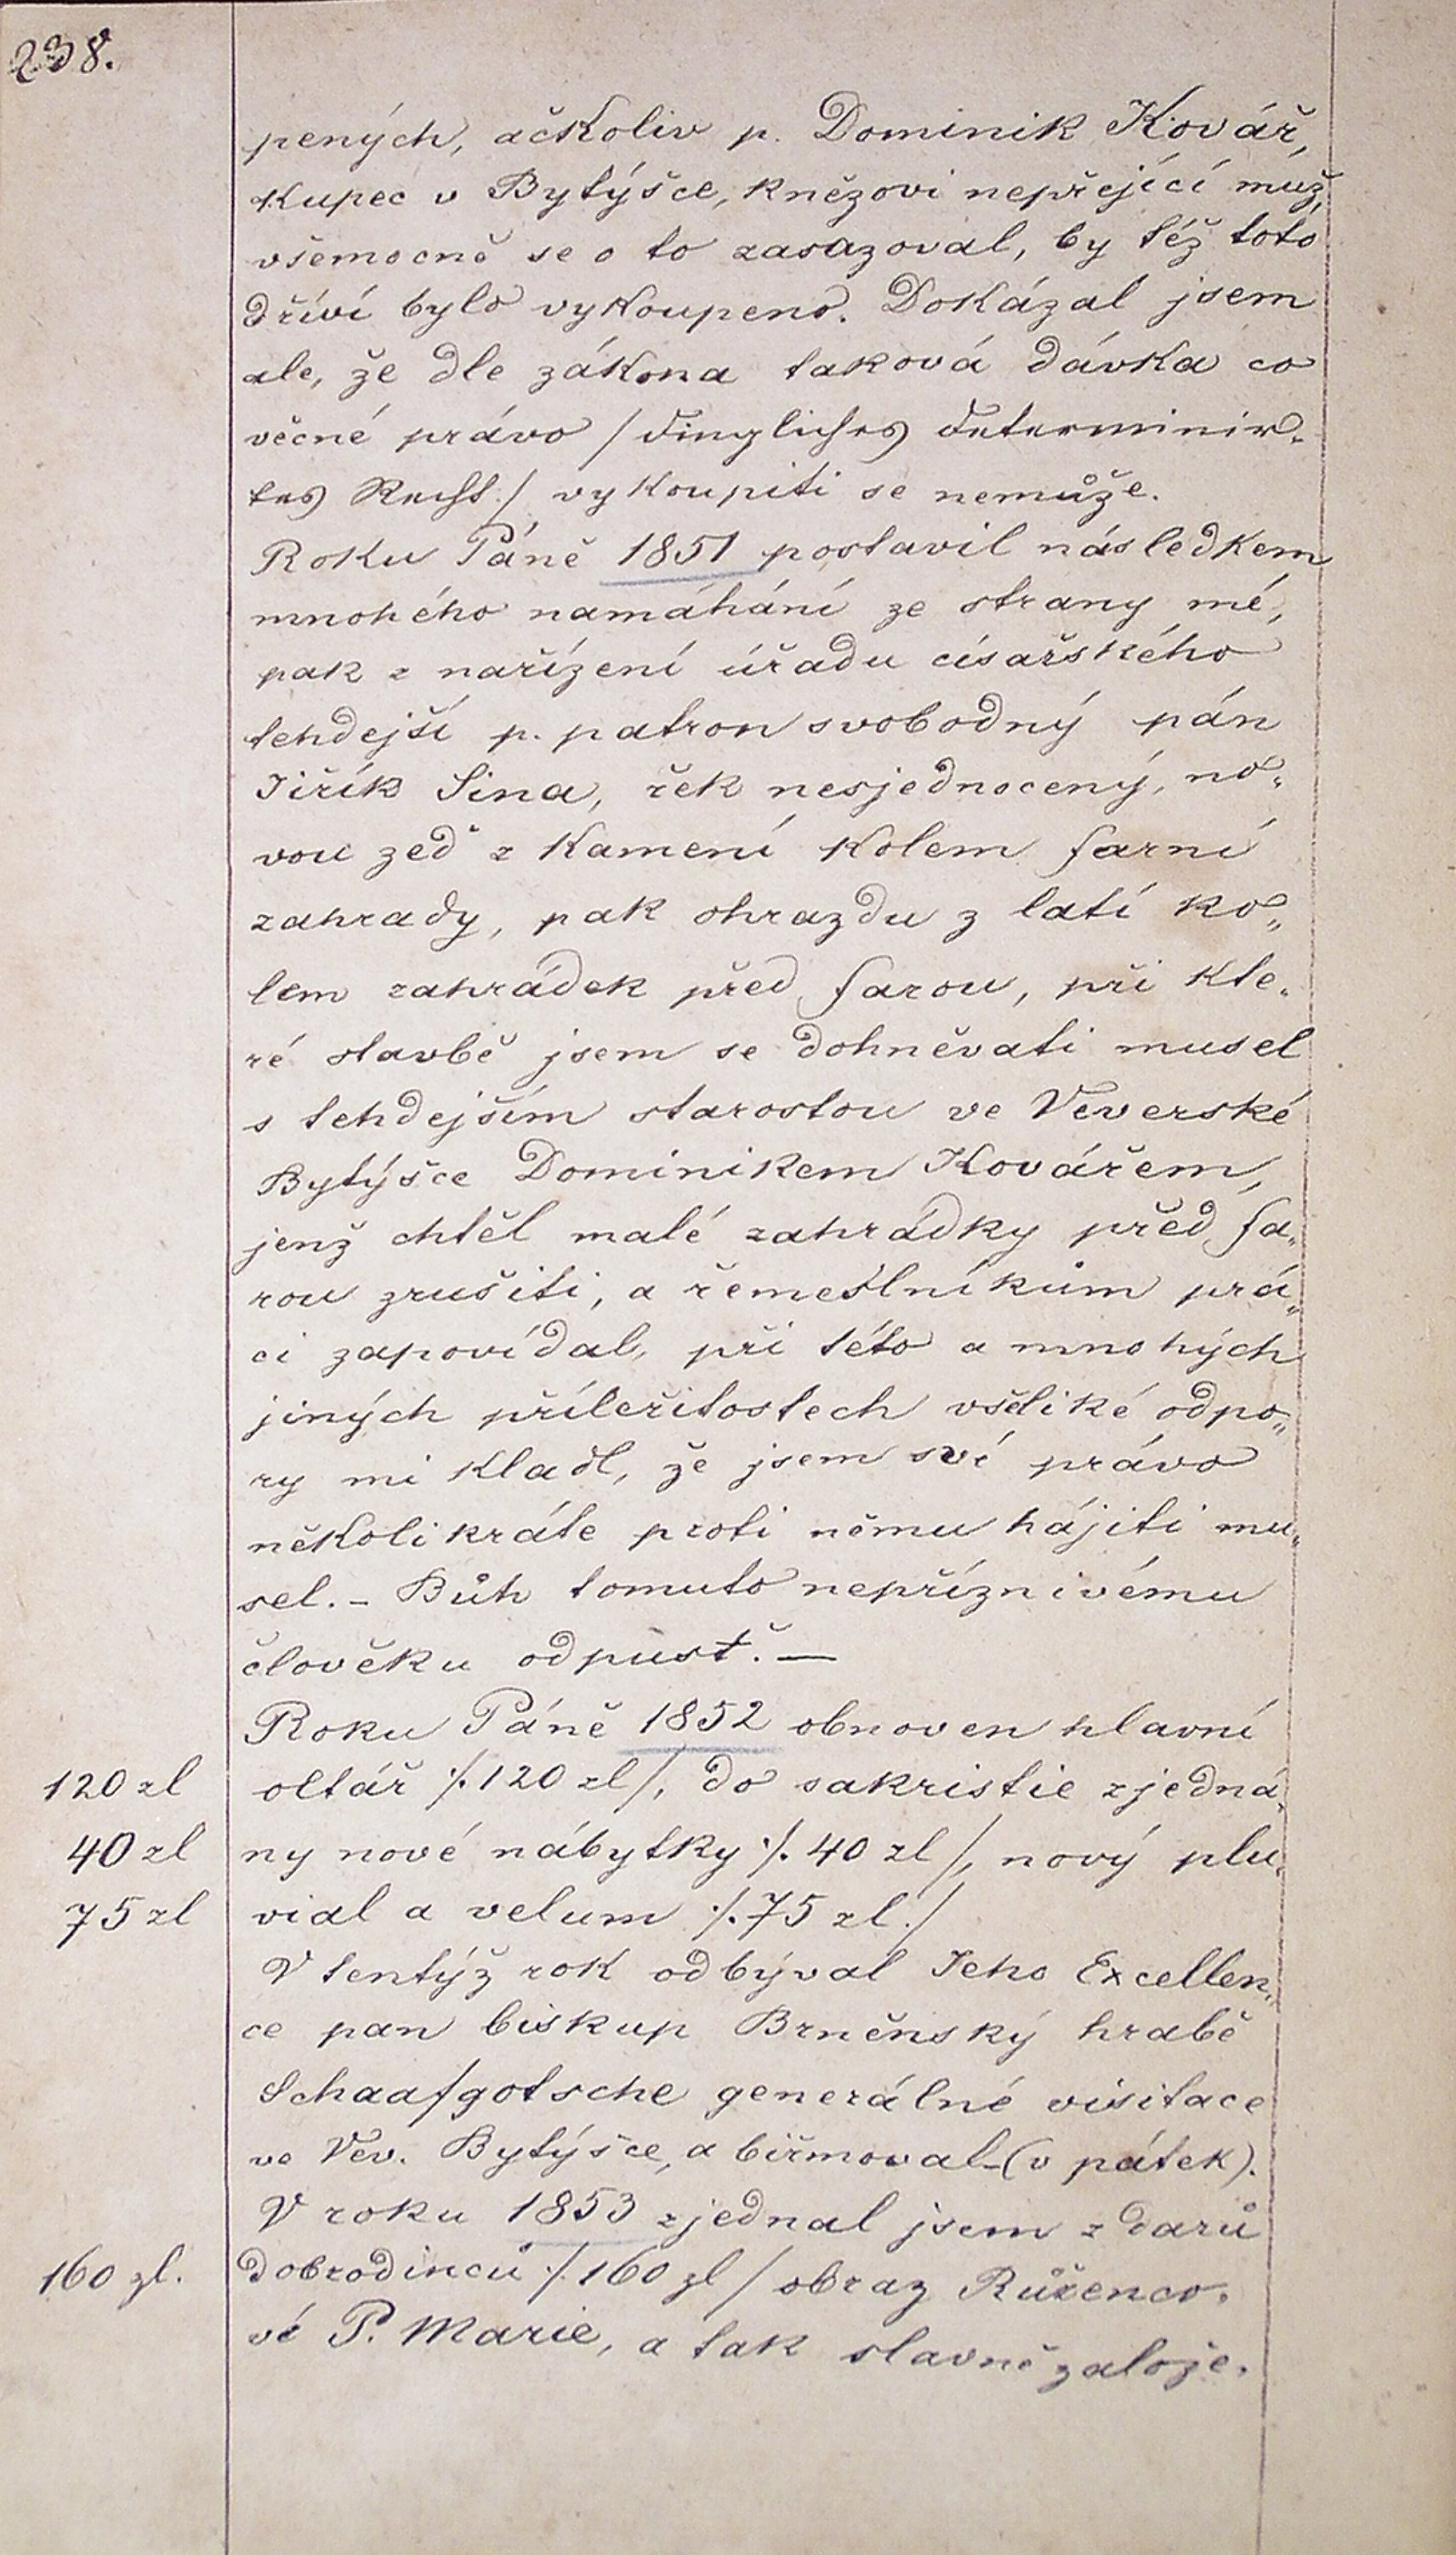 238.
pených, ačkoliv p. Dominik Kovář,
kupec v Bytýšce, knězovi nepřející muž,
všemocně se o to zasazoval, by též toto
dříví bylo vykoupeno. Dokázal jsem
ale, že dle zákona taková dávka co
věcné právo /dingliches determinir„
tes Recht./ vykoupiti se nemůže.
Roku Páně 1851 postavil následkem
mnohého namáhání ze strany mé,
pak z nařízení úřadu císařského
tehdejší p. patron svobodný pán
Jiřík Sina, řek nesjednocený, no„
vou zeď z kamení kolem farní
zahrady, pak ohrazdu z latí ko„
lem zahrádek před farou, při kte„
ré stavbě jsem se dohněvati musel
s tehdejším starostou ve Veverské
Bytýšce Dominikem Kovářem,
jenž chtěl malé zahrádky před fa„
rou zrušiti, a řemeslníkům prá„
ci zapovídal, při této a mnohých
jiných příležitostech všeliké odpo„
ry mi kladl, že jsem své právo
několikráte proti němu hájiti mu„
sel. – Bůh tomuto nepříznivému
člověku odpusť. —
Roku Páně 1852 obnoven hlavní
120 zl oltář /.120 zl/, do sakristie zjedná„
40 zl ny nové nábytky /. 40 zl/, nový plu„
75 zl vial a velum /.75 zl./
V tentýž rok odbýval Jeho Excellen„
ce pan biskup Brněnský hrabě
Schaafgotsche generálné visitace
ve Vev. Bytýšce, a biřmoval (v pátek).
V roku 1853 zjednal jsem z darů
160 zl. dobrodinců /.160 zl/ obraz Růženco„
vé P. Marie, a tak slavně založe„